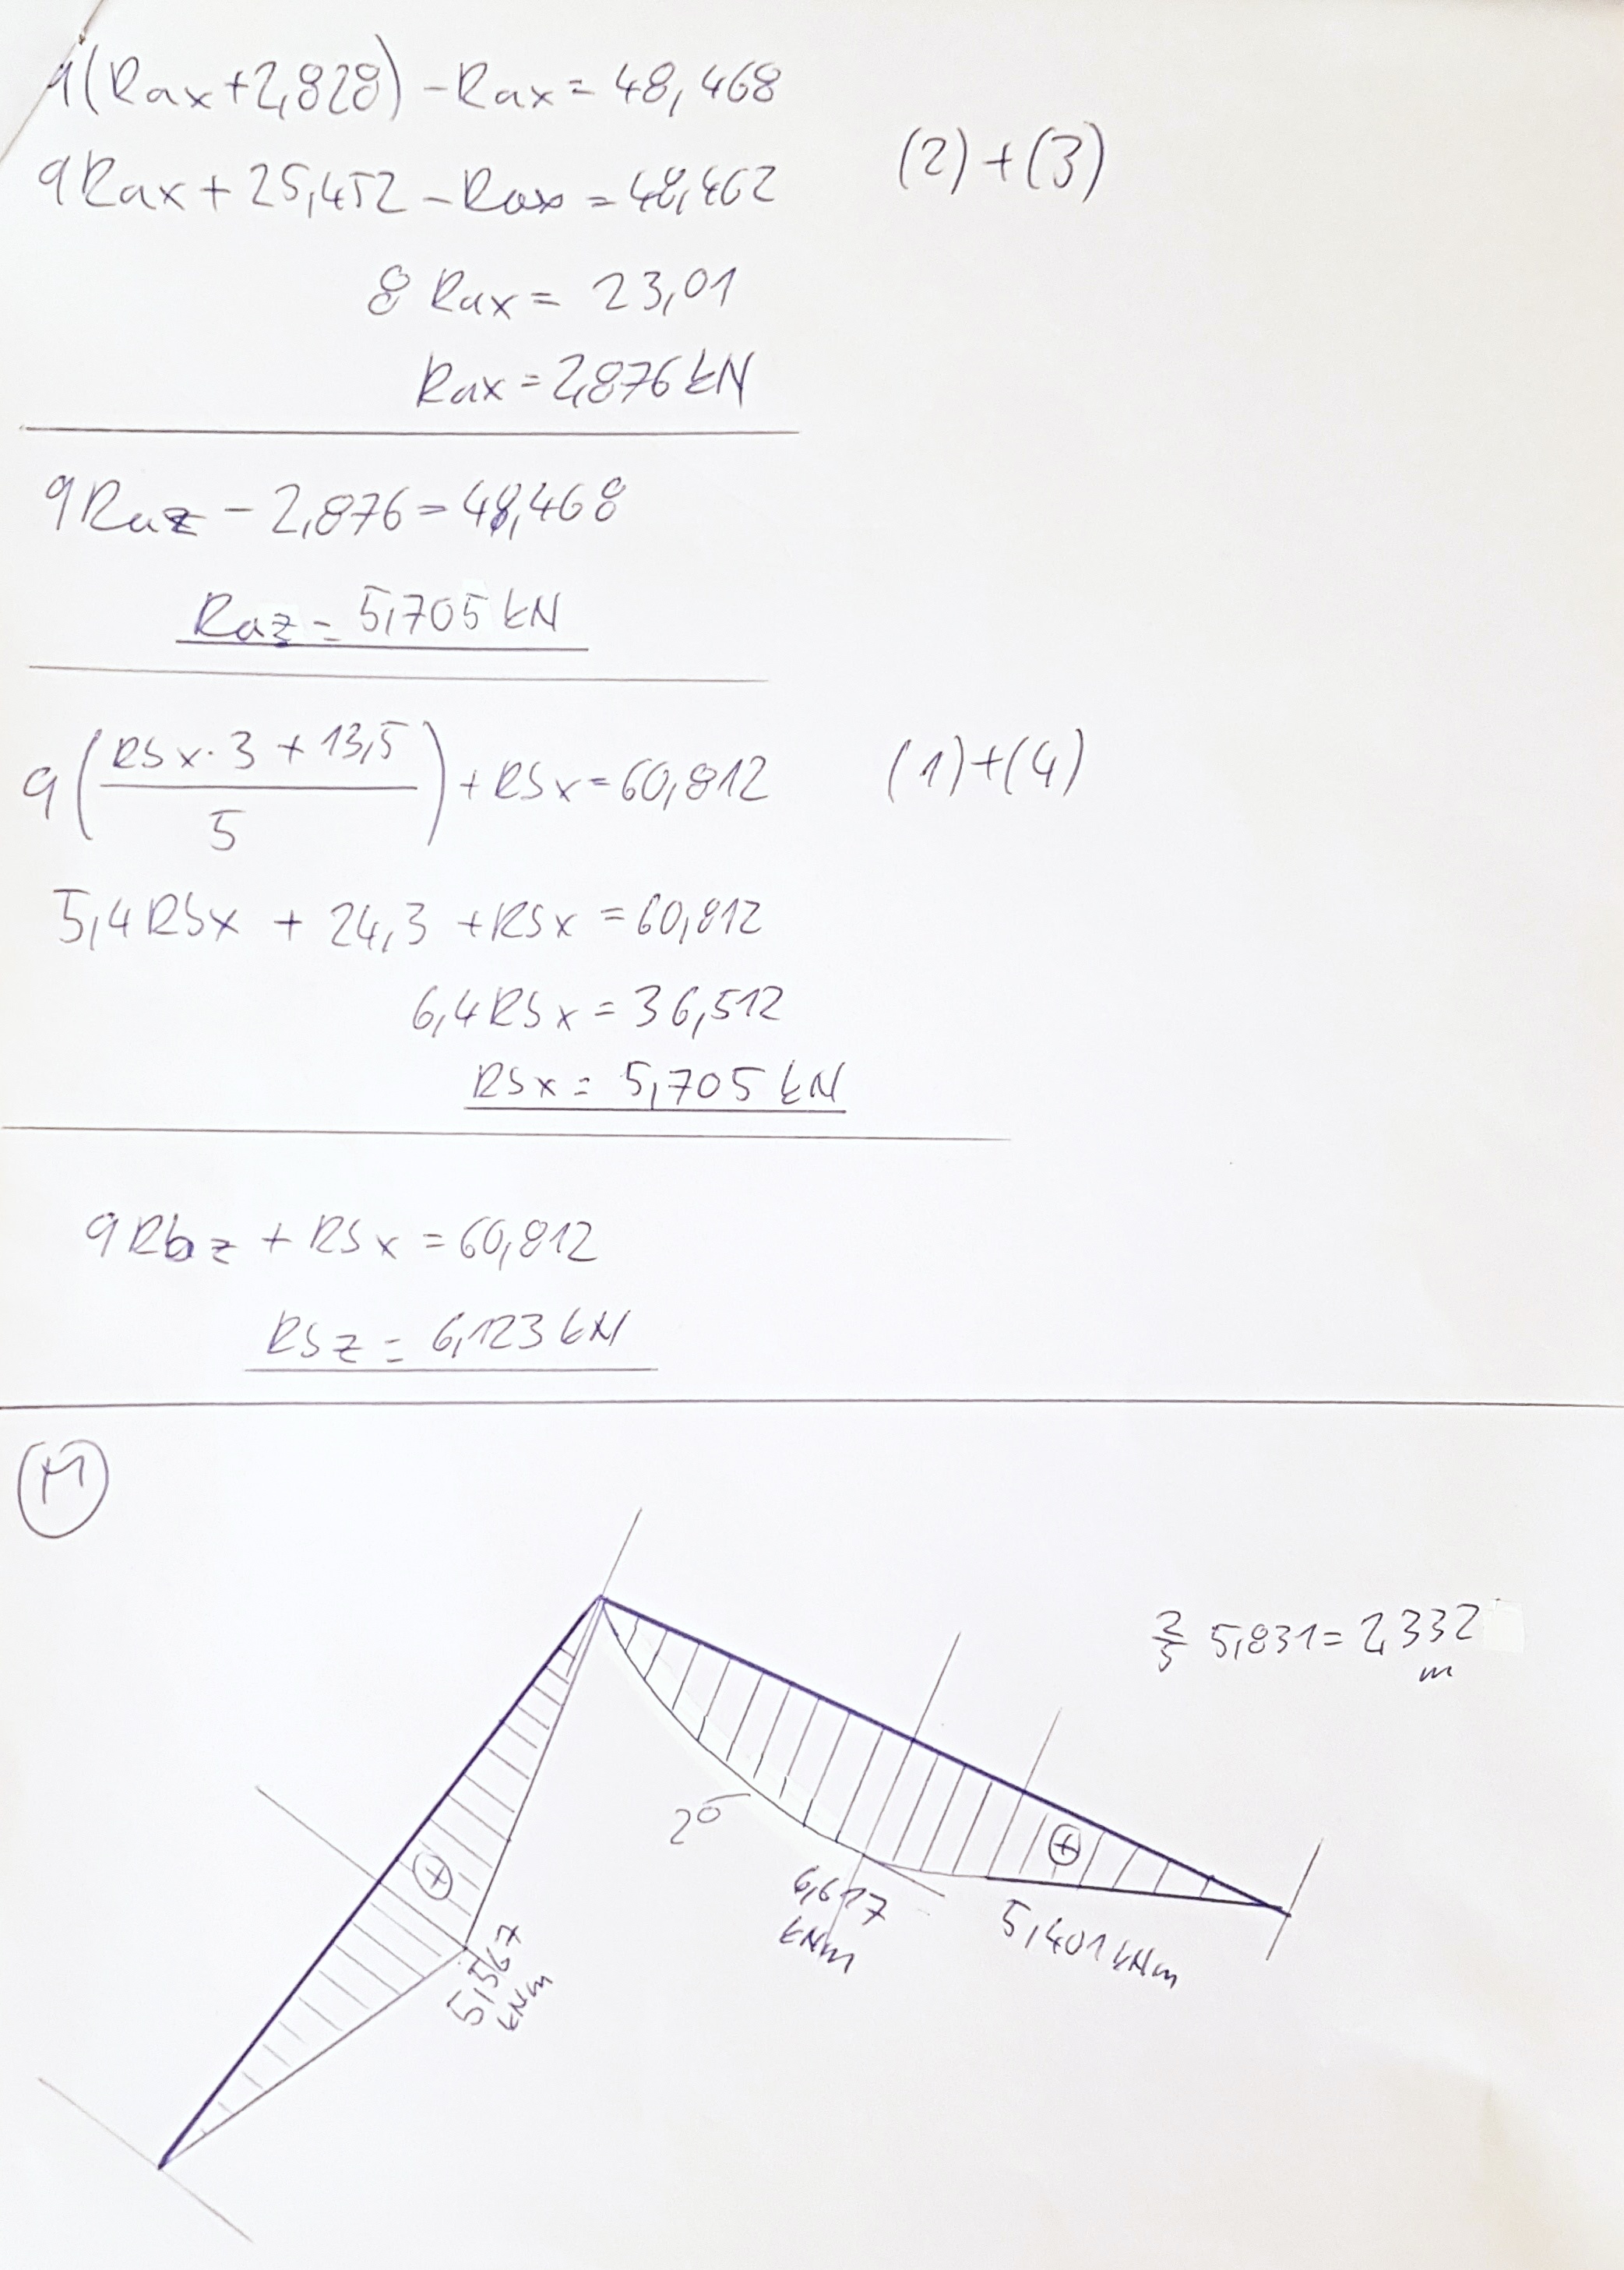 9(Rax+2,828) -Rax = 48,468
9Rax + 25,452 - Rax = 48,462
(2)+(3)
8 Rax = 23,01
Rax = 2,876 kN
9Raz - 2,876 = 48,468
Raz = 5,705 kN
9(Rbx·3 + 13,5 / 5) + Rbx = 60,812
(1)+(4)
5,4Rbx + 24,3 + Rbx = 60,812
6,4Rbx = 36,512
Rbx = 5,705 kN
9Rbz + Rbx = 60,812
Rbz = 6,123 kN
M
2/5 5,831 = 2,332 m
+
2°
+
6,617 kNm
5,401 kNm
5,567 kNm